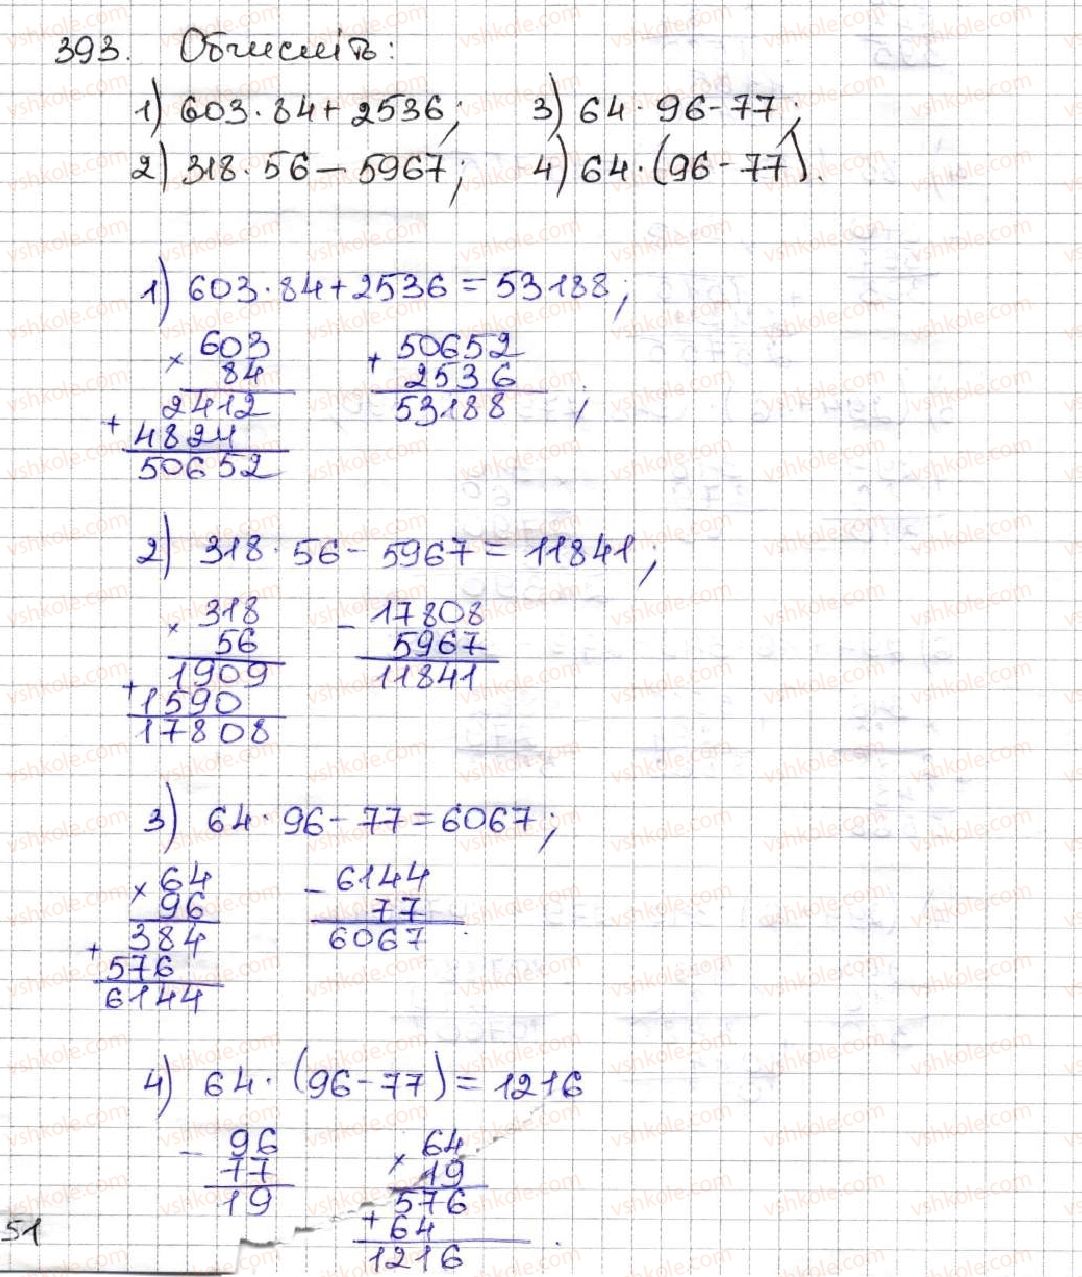 393. Обчисліть:
1) 603·84+2536; 3) 64·96-77;
2) 318·56-5967; 4) 64·(96-77).
1) 603·84+2536=53188;
× 603 + 50652
84 2536
2412 53188 ;
+ 4824
50652
2) 318·56-5967=11841;
× 318 - 17808
56 5967
1909 11841
+ 1590
17808
3) 64·96-77=6067;
× 64 - 6144
96 77
384 6067
+ 576
6144
4) 64·(96-77)=1216
- 96 × 64
77 19
19 576
+ 64
51
1216